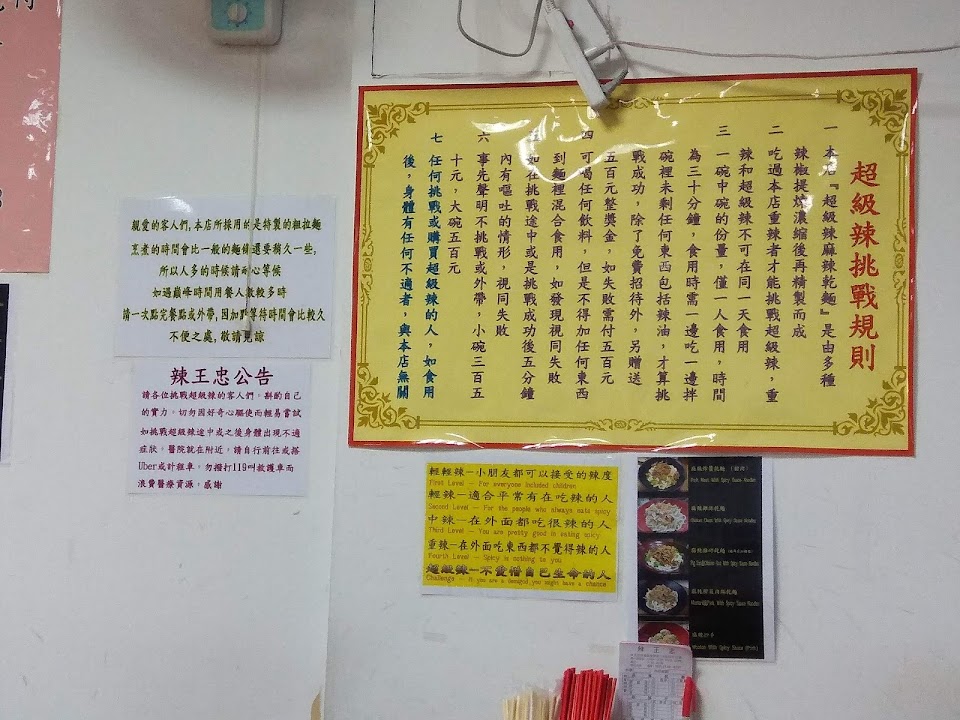 超級辣挑戰規則
一 本店『超級辣麻辣乾麵』是由多種
辣椒提煉濃縮後再精製而成
二 吃過本店重辣者才能挑戰超級辣，重
辣和超級辣不可在同一天食用
三 一碗中碗的份量，僅一人食用，時間
為三十分鐘，食用時需一邊吃一邊拌
碗裡未剩任何東西包括辣油，才算挑
戰成功，除了免費招待外，另贈送
五百元整獎金，如失敗需付五百元
四 可喝任何飲料，但是不得加任何東西
到麵裡混合食用，如發現視同失敗
五 如在挑戰途中或是挑戰成功後五分鐘
內有嘔吐的情形，視同失敗
六 事先聲明不挑戰或外帶，小碗三百五
十元，大碗五百元
七 任何挑戰或購買超級辣的人，如食用
後，身體有任何不適者，與本店無關
親愛的客人們,本店所採用的是特製的粗拉麵
烹煮的時間會比一般的麵條還要稍久一些,
所以人多的時候請耐心等候
如過巔峰時間用餐人數較多時
請一次點完餐點或外帶,因加點等待時間會比較久
不便之處,敬請見諒
辣王忠公告
請各位挑戰超級辣的客人們。斟酌自己
的實力。切勿因好奇心驅使而輕易嘗試
如挑戰超級辣途中或之後身體出現不適
症狀。醫院就在附近，請自行前往或搭
Uber或計程車。勿撥打119叫救護車而
浪費醫療資源，感謝
輕輕辣—小朋友都可以接受的辣度
First Level — For everyone included children
輕辣—適合平常有在吃辣的人
Second Level — For the people who always eats spicy
中辣—在外面都吃很辣的人
Third Level — You are pretty good in eating spicy
重辣—在外面吃東西都不覺得辣的人
Fourth Level — Spicy is nothing to you
超級辣—不愛惜自己生命的人
Challenge — If you are a damaged,you might have a chance